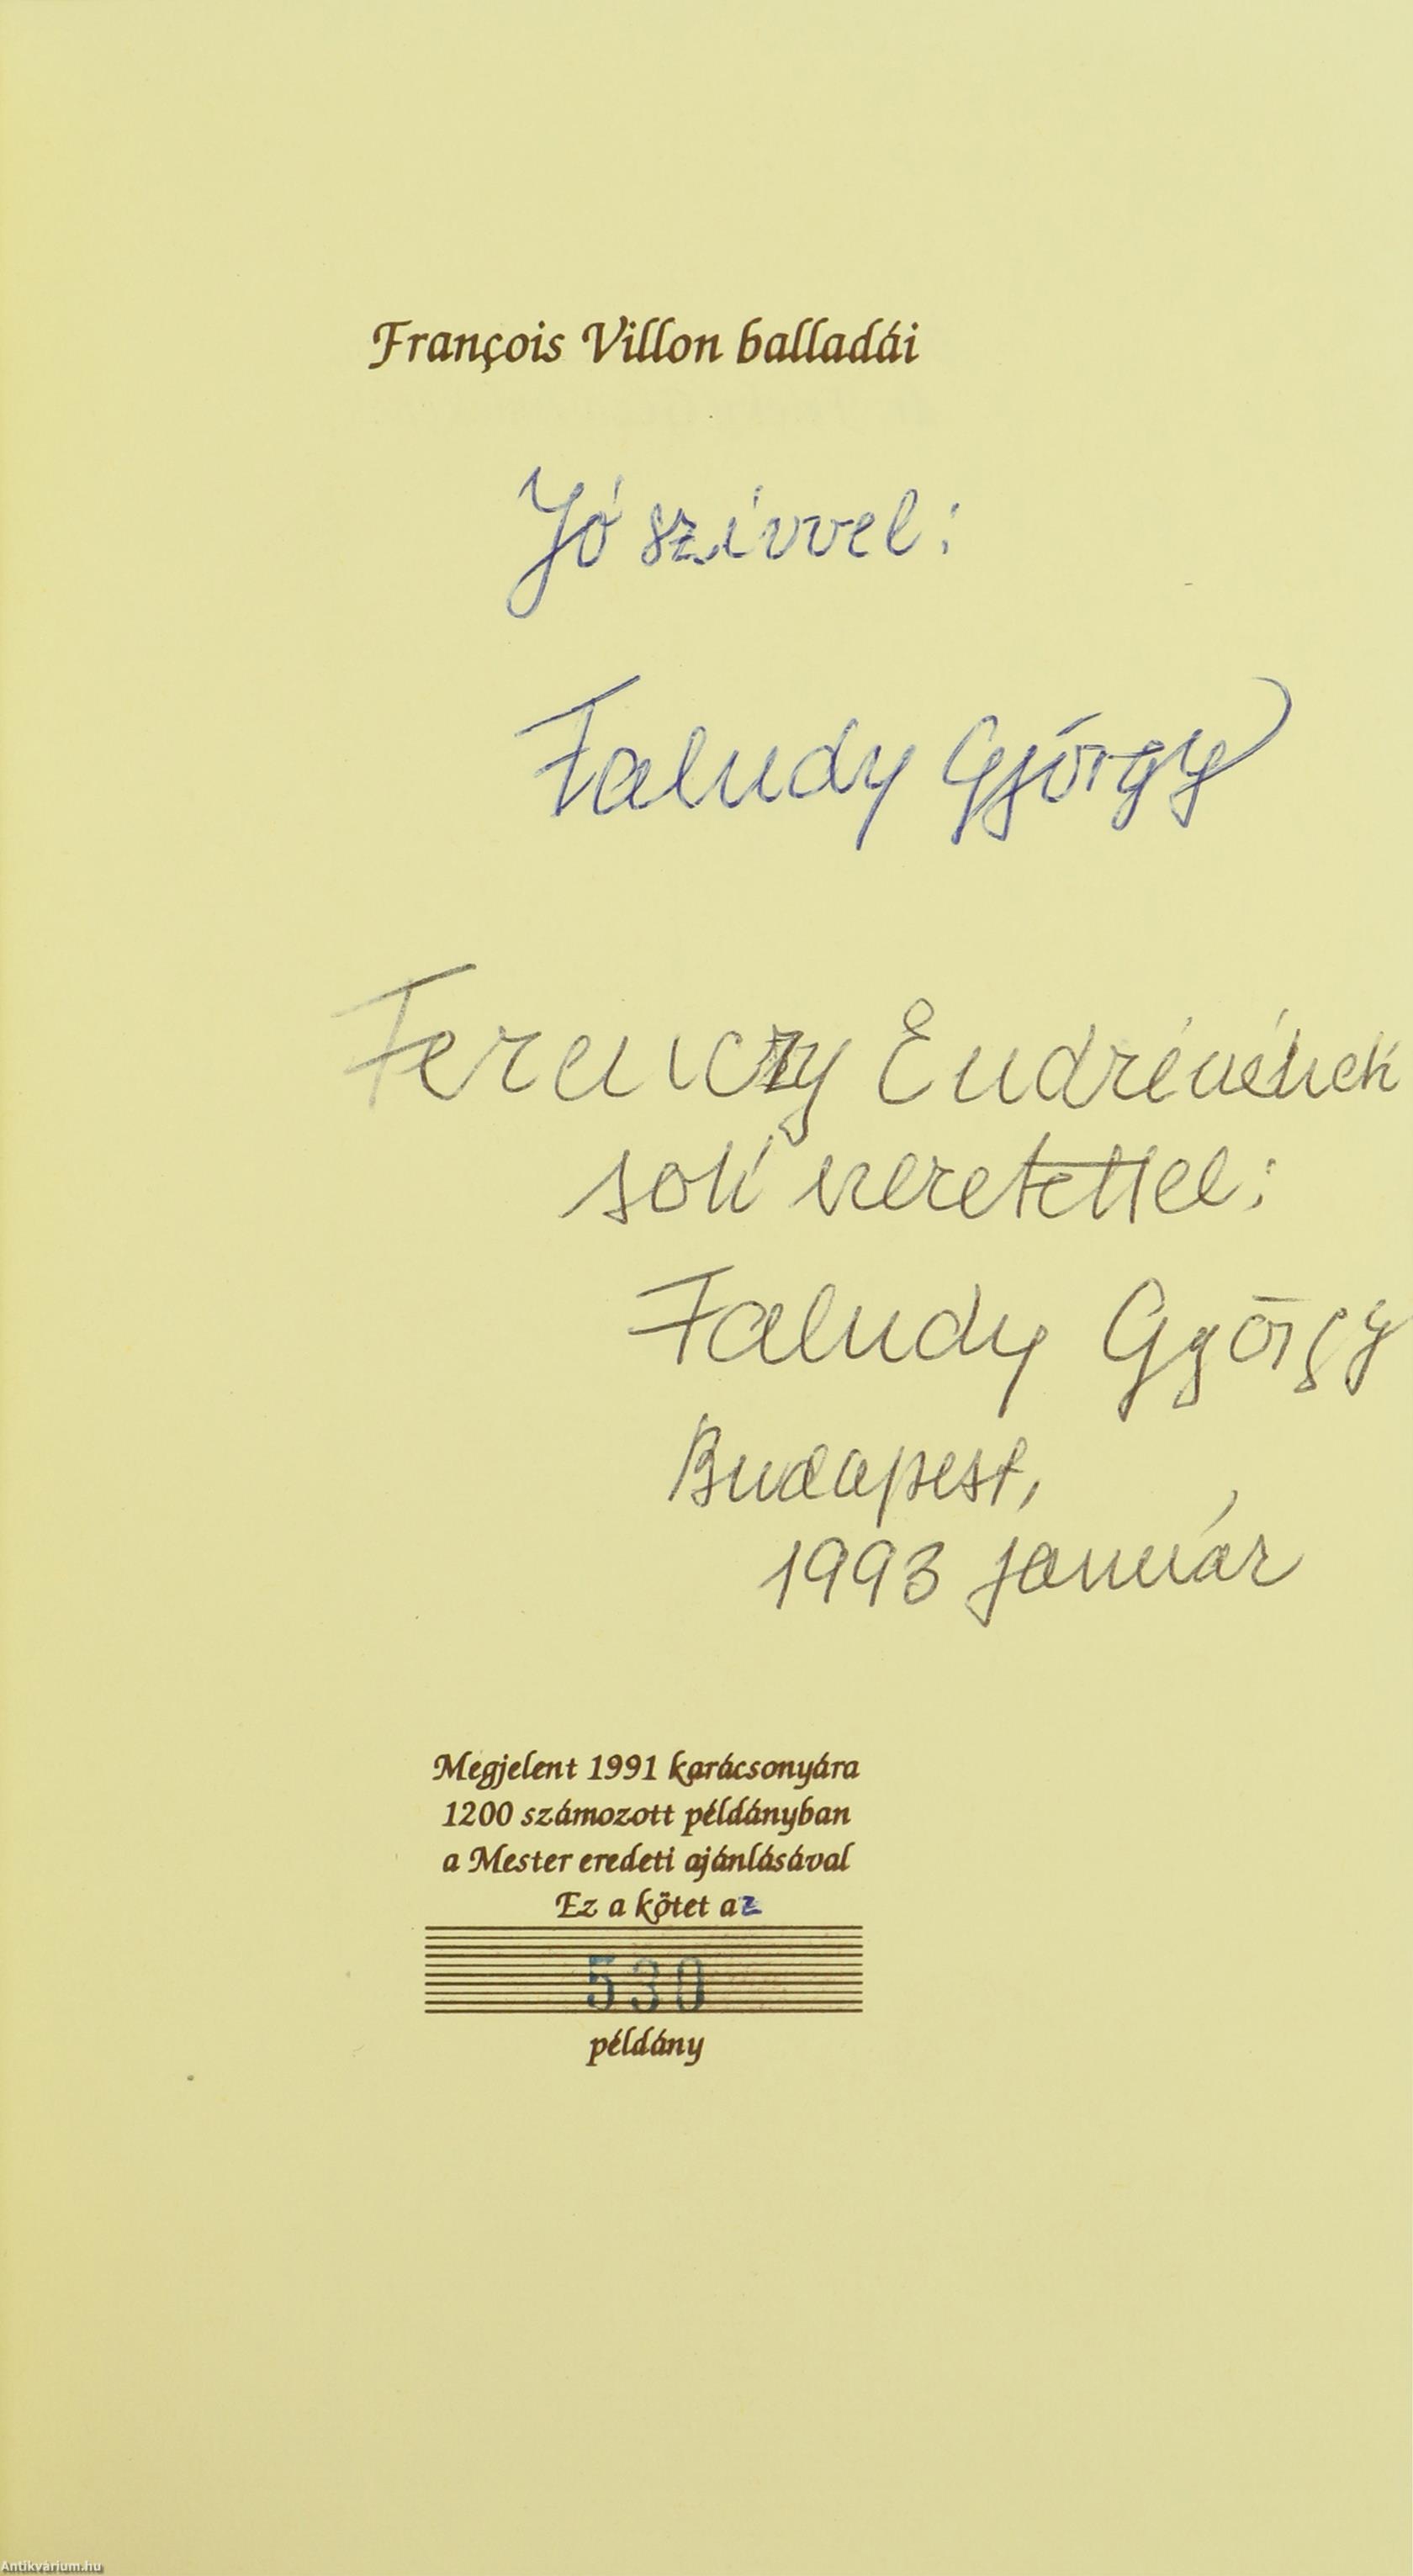 François Villon balladái
Jó szívvel:
Faludy György
Ferenczy Endrénének
sok szeretettel:
Faludy György
Budapest,
1993 január
Megjelent 1991 karácsonyára
1200 számozott példányban
a Mester eredeti ajánlásával
Ez a kötet az
530
példány
Antikvárium.hu